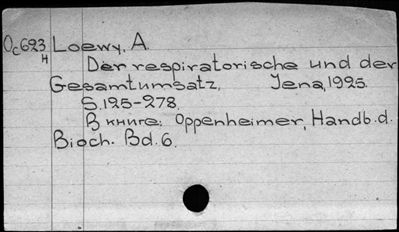 Oc623 Loewy, A.
н
Der respiratorische und der
Gesamtumsatz. Jena, 1925.
S. 125-278.
В книге: Oppenheimer, Handb. d.
Bioch. Bd. 6.